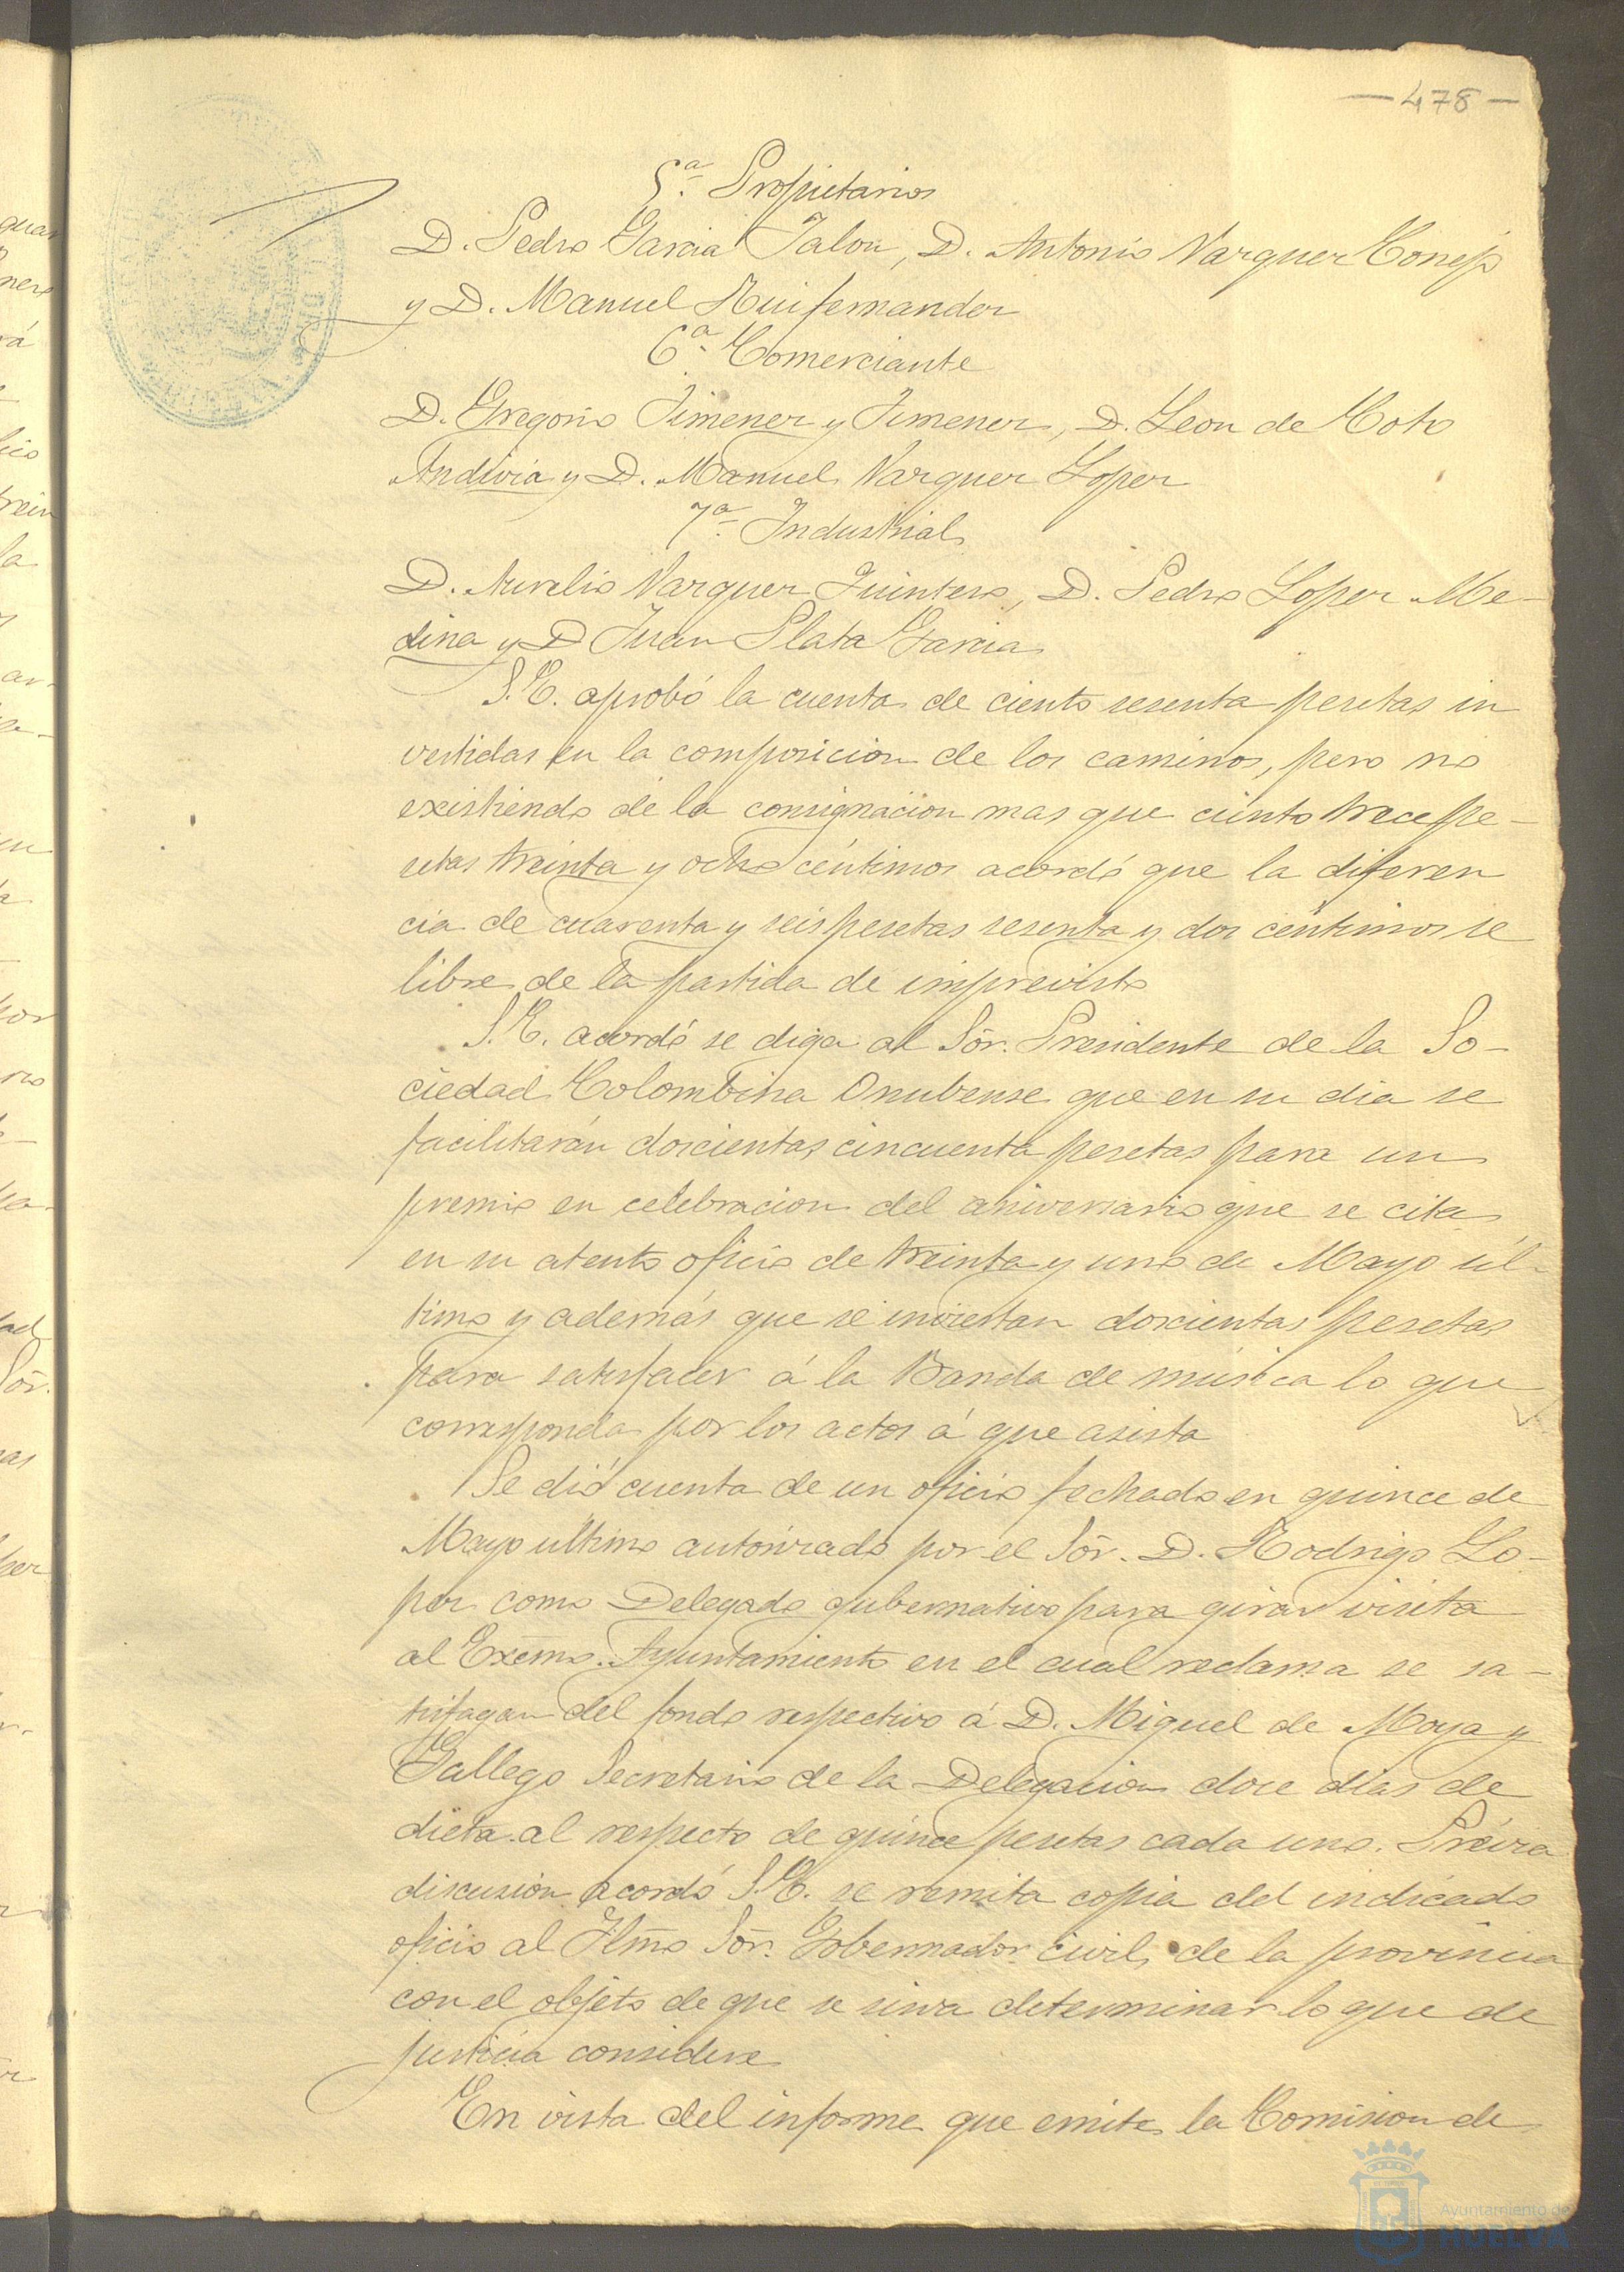 — 478 —
5ª Propietarios
D. Pedro Garcia Jalon, D. Antonio Vazquez Conejo
y D. Manuel Ruifernandez
6ª Comerciante
D. Gregorio Jimenez y Jimenez, D. Leon de Coto
Andivia y D. Manuel Vazquez Lopez
7ª Industrial
D. Aurelio Vazquez Quintero, D. Pedro Lopez Me-
dina y D Juan Plata Garcia
S.E. aprobó la cuenta de ciento sesenta pesetas in
vertidas en la composicion de los caminos, pero no
existiendo de la consignacion mas que ciento trece pe-
setas treinta y ocho céntimos acordó que la diferen
cia de cuarenta y seis pesetas sesenta y dos céntimos se
libre de la partida de imprevisto
S.E. acordó se diga al Sõr. Presidente de la So-
ciedad Colombina Onubense que en su dia se
facilitarán doscientas cincuenta pesetas para un
premio en celebracion del aniversario que se cita
en su atento oficio de treinta y uno de Mayo úl-
timo y además que se inviertan doscientas pesetas
para satisfacer á la Banda de música lo que
corresponda por los actos á que asista
Se dió cuenta de un oficio fechado en quince de
Mayo ultimo autorizado por el Sõr. D. Rodrigo Lo-
pez como Delegado gubernativo para girar visita
al Excmo. Ayuntamiento en el cual reclama se sa-
tisfagan del fondo respectivo á D. Miguel de Moya y
Gallego Secretario de la Delegacion doce dias de
dieta al respecto de quince pesetas cada uno. Prévia
discusion acordó S.E. se remita copia del indicado
oficio al Iltmo Sõr. Gobernador civil de la provincia
con el objeto de que se sirva determinar lo que de
justicia considere
En vista del informe que emite la Comision de
Ayuntamiento de
HUELVA